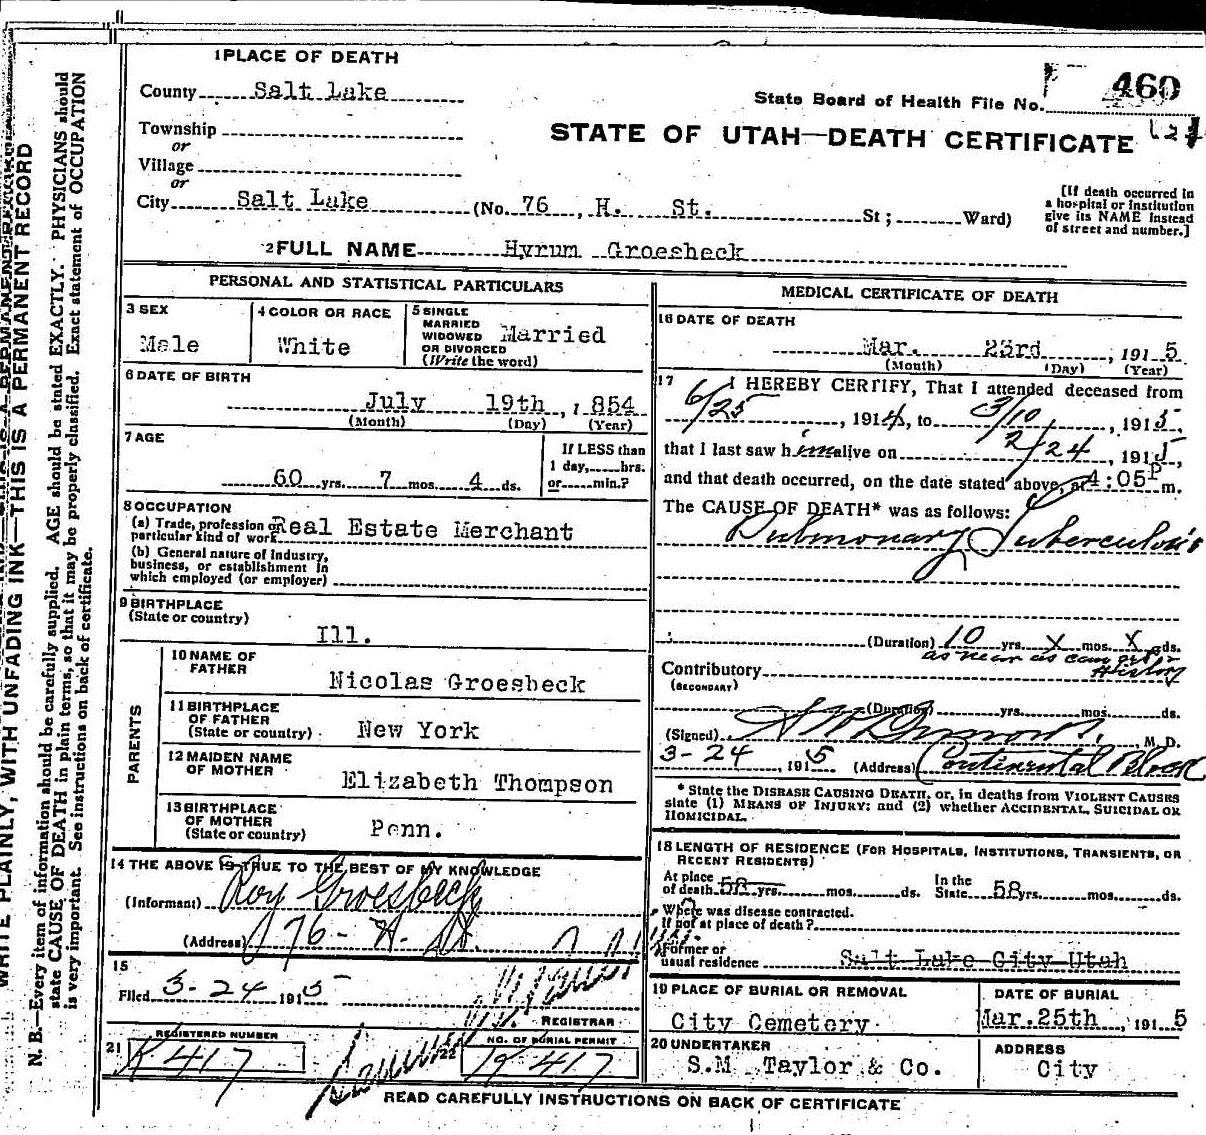 1 PLACE OF DEATH
County Salt Lake
State Board of Health File No. 460
Township
or
STATE OF UTAH—DEATH CERTIFICATE
Village
or
City Salt Lake (No. 76, H. St. St; Ward)
[If death occurred in
a hospital or institution
give its NAME instead
of street and number.]
2 FULL NAME Hyrum Groesbeck
PERSONAL AND STATISTICAL PARTICULARS
3 SEX
Male
4 COLOR OR RACE
White
5 SINGLE
MARRIED
WIDOWED
OR DIVORCED
(Write the word)
Married
6 DATE OF BIRTH
July 19th, 1854
(Month) (Day) (Year)
7 AGE
60 yrs. 7 mos. 4 ds.
If LESS than
1 day, hrs.
or min.?
8 OCCUPATION
(a) Trade, profession or
particular kind of work Real Estate Merchant
(b) General nature of Industry,
business, or establishment in
which employed (or employer)
9 BIRTHPLACE
(State or country)
Ill.
PARENTS
10 NAME OF
FATHER
Nicolas Groesbeck
11 BIRTHPLACE
OF FATHER
(State or country)
New York
12 MAIDEN NAME
OF MOTHER
Elizabeth Thompson
13 BIRTHPLACE
OF MOTHER
(State or country)
Penn.
14 THE ABOVE IS TRUE TO THE BEST OF MY KNOWLEDGE
(Informant) Roy Groesbeck
(Address) 76 - H. St.
15
Filed 3-24 1915
REGISTRAR
REGISTERED NUMBER
21 K 417
NO. OF BURIAL PERMIT
22 K 417
MEDICAL CERTIFICATE OF DEATH
16 DATE OF DEATH
Mar. 23rd, 1915
(Month) (Day) (Year)
17 I HEREBY CERTIFY, That I attended deceased from
6/25, 1914, to 3/10, 1915,
that I last saw him alive on 2/24, 1915,
and that death occurred, on the date stated above, at 4:05 P m.
The CAUSE OF DEATH* was as follows:
Pulmonary Tuberculosis
(Duration) 10 yrs. X mos. X ds.
as near as can get in
History
Contributory
(SECONDARY)
(Duration) yrs. mos. ds.
(Signed) M. D.
3-24, 1915 (Address) Continental Block
* State the DISEASE CAUSING DEATH, or, in deaths from VIOLENT CAUSES
state (1) MEANS OF INJURY; and (2) whether ACCIDENTAL, SUICIDAL OR
HOMICIDAL.
18 LENGTH OF RESIDENCE (FOR HOSPITALS, INSTITUTIONS, TRANSIENTS, OR
RECENT RESIDENTS)
At place
of death 58 yrs. mos. ds.
In the
State 58 yrs. mos. ds.
Where was disease contracted.
If not at place of death?
Former or
usual residence Salt Lake City Utah
19 PLACE OF BURIAL OR REMOVAL
City Cemetery
DATE OF BURIAL
Mar. 25th, 1915
20 UNDERTAKER
S.M. Taylor & Co.
ADDRESS
City
READ CAREFULLY INSTRUCTIONS ON BACK OF CERTIFICATE
WRITE PLAINLY, WITH UNFADING INK—THIS IS A PERMANENT RECORD
N. B.—Every item of information should be carefully supplied. AGE should be stated EXACTLY. PHYSICIANS should
state CAUSE OF DEATH in plain terms, so that it may be properly classified. Exact statement of OCCUPATION
is very important. See instructions on back of certificate.